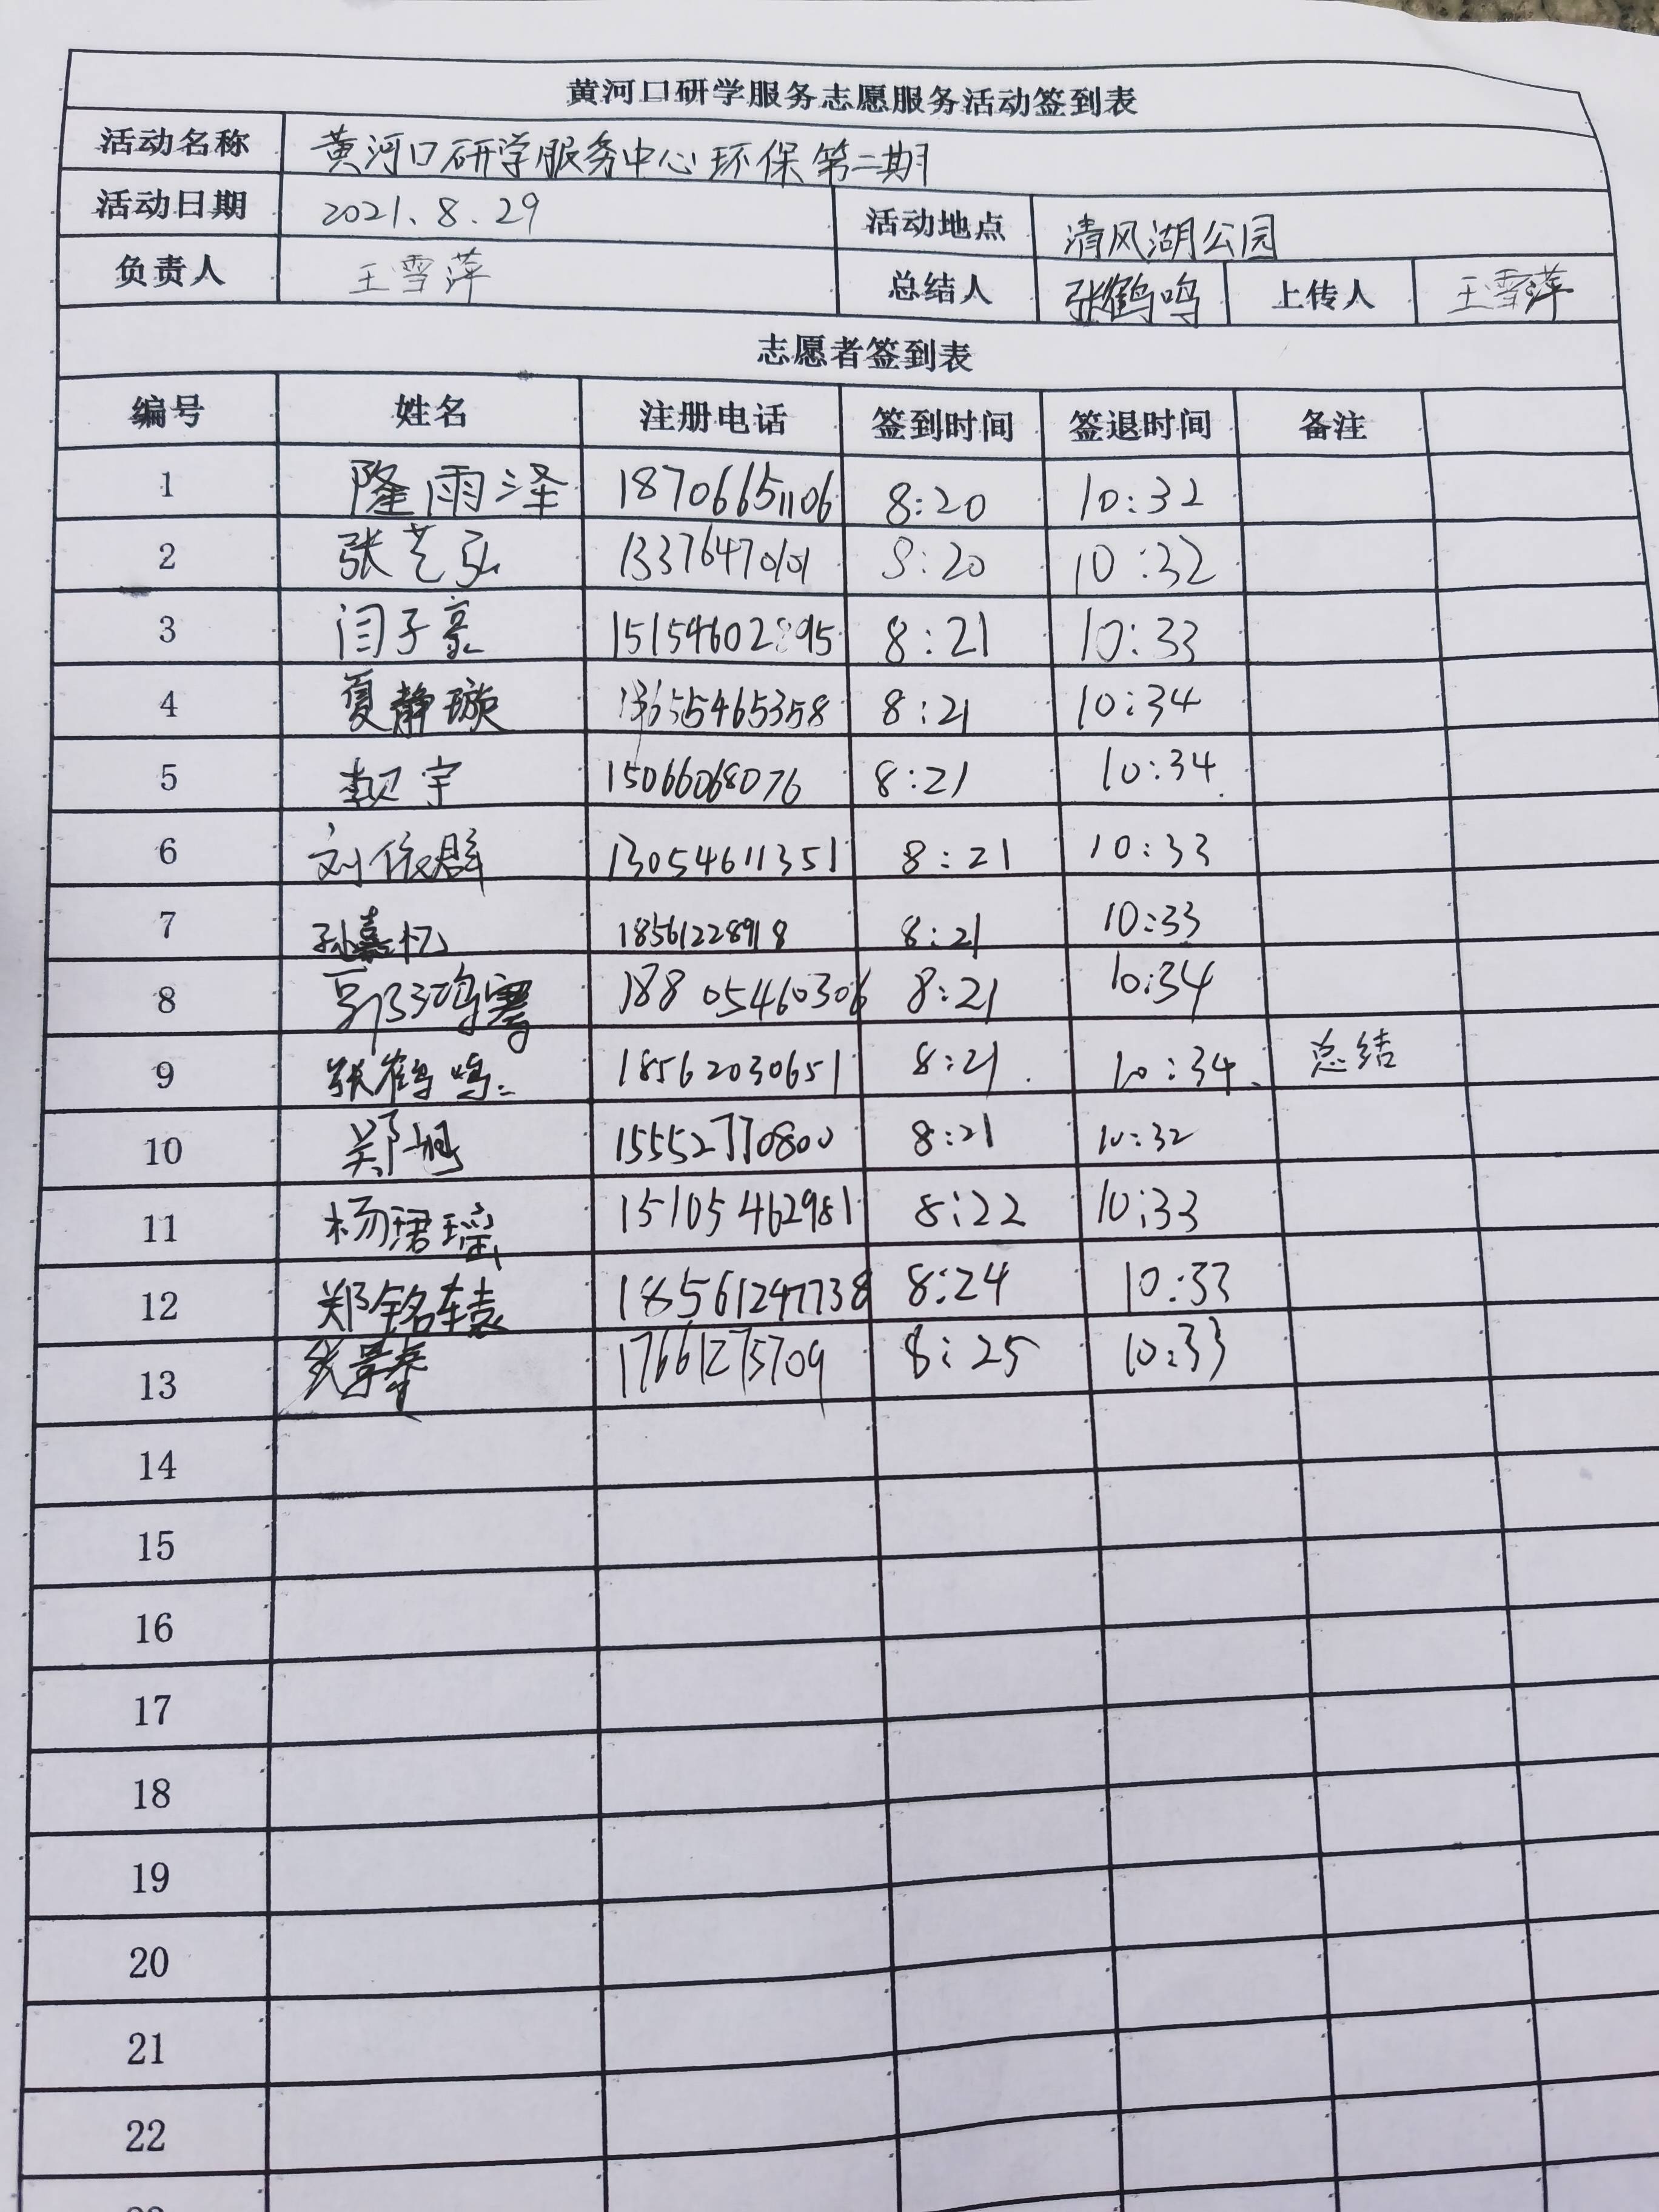 黄河口研学服务志愿服务活动签到表
活动名称 黄河口研学服务中心环保第二期
活动日期 2021.8.29 活动地点 清风湖公园
负责人 王雪萍 总结人 张鹤鸣 上传人 王雪萍
志愿者签到表
编号 姓名 注册电话 签到时间 签退时间 备注
1 隆雨泽 18706651106 8:20 10:32
2 张艺弘 13376470101 8:20 10:32
3 闫子豪 15154602895 8:21 10:33
4 夏静璇 13655465358 8:21 10:34
5 宇 15066068076 8:21 10:34
6 刘依群 13054611351 8:21 10:33
7 孙嘉忆 18561228918 8:21 10:33
8 郭鸣骞 18805460306 8:21 10:34
9 张鹤鸣 18562030651 8:21 10:34 总结
10 郑旭 15552770800 8:21 10:32
11 杨珺瑶 15105462981 8:22 10:33
12 郑铭辕 18561247738 8:24 10:33
13 17661275709 8:25 10:33
14
15
16
17
18
19
20
21
22